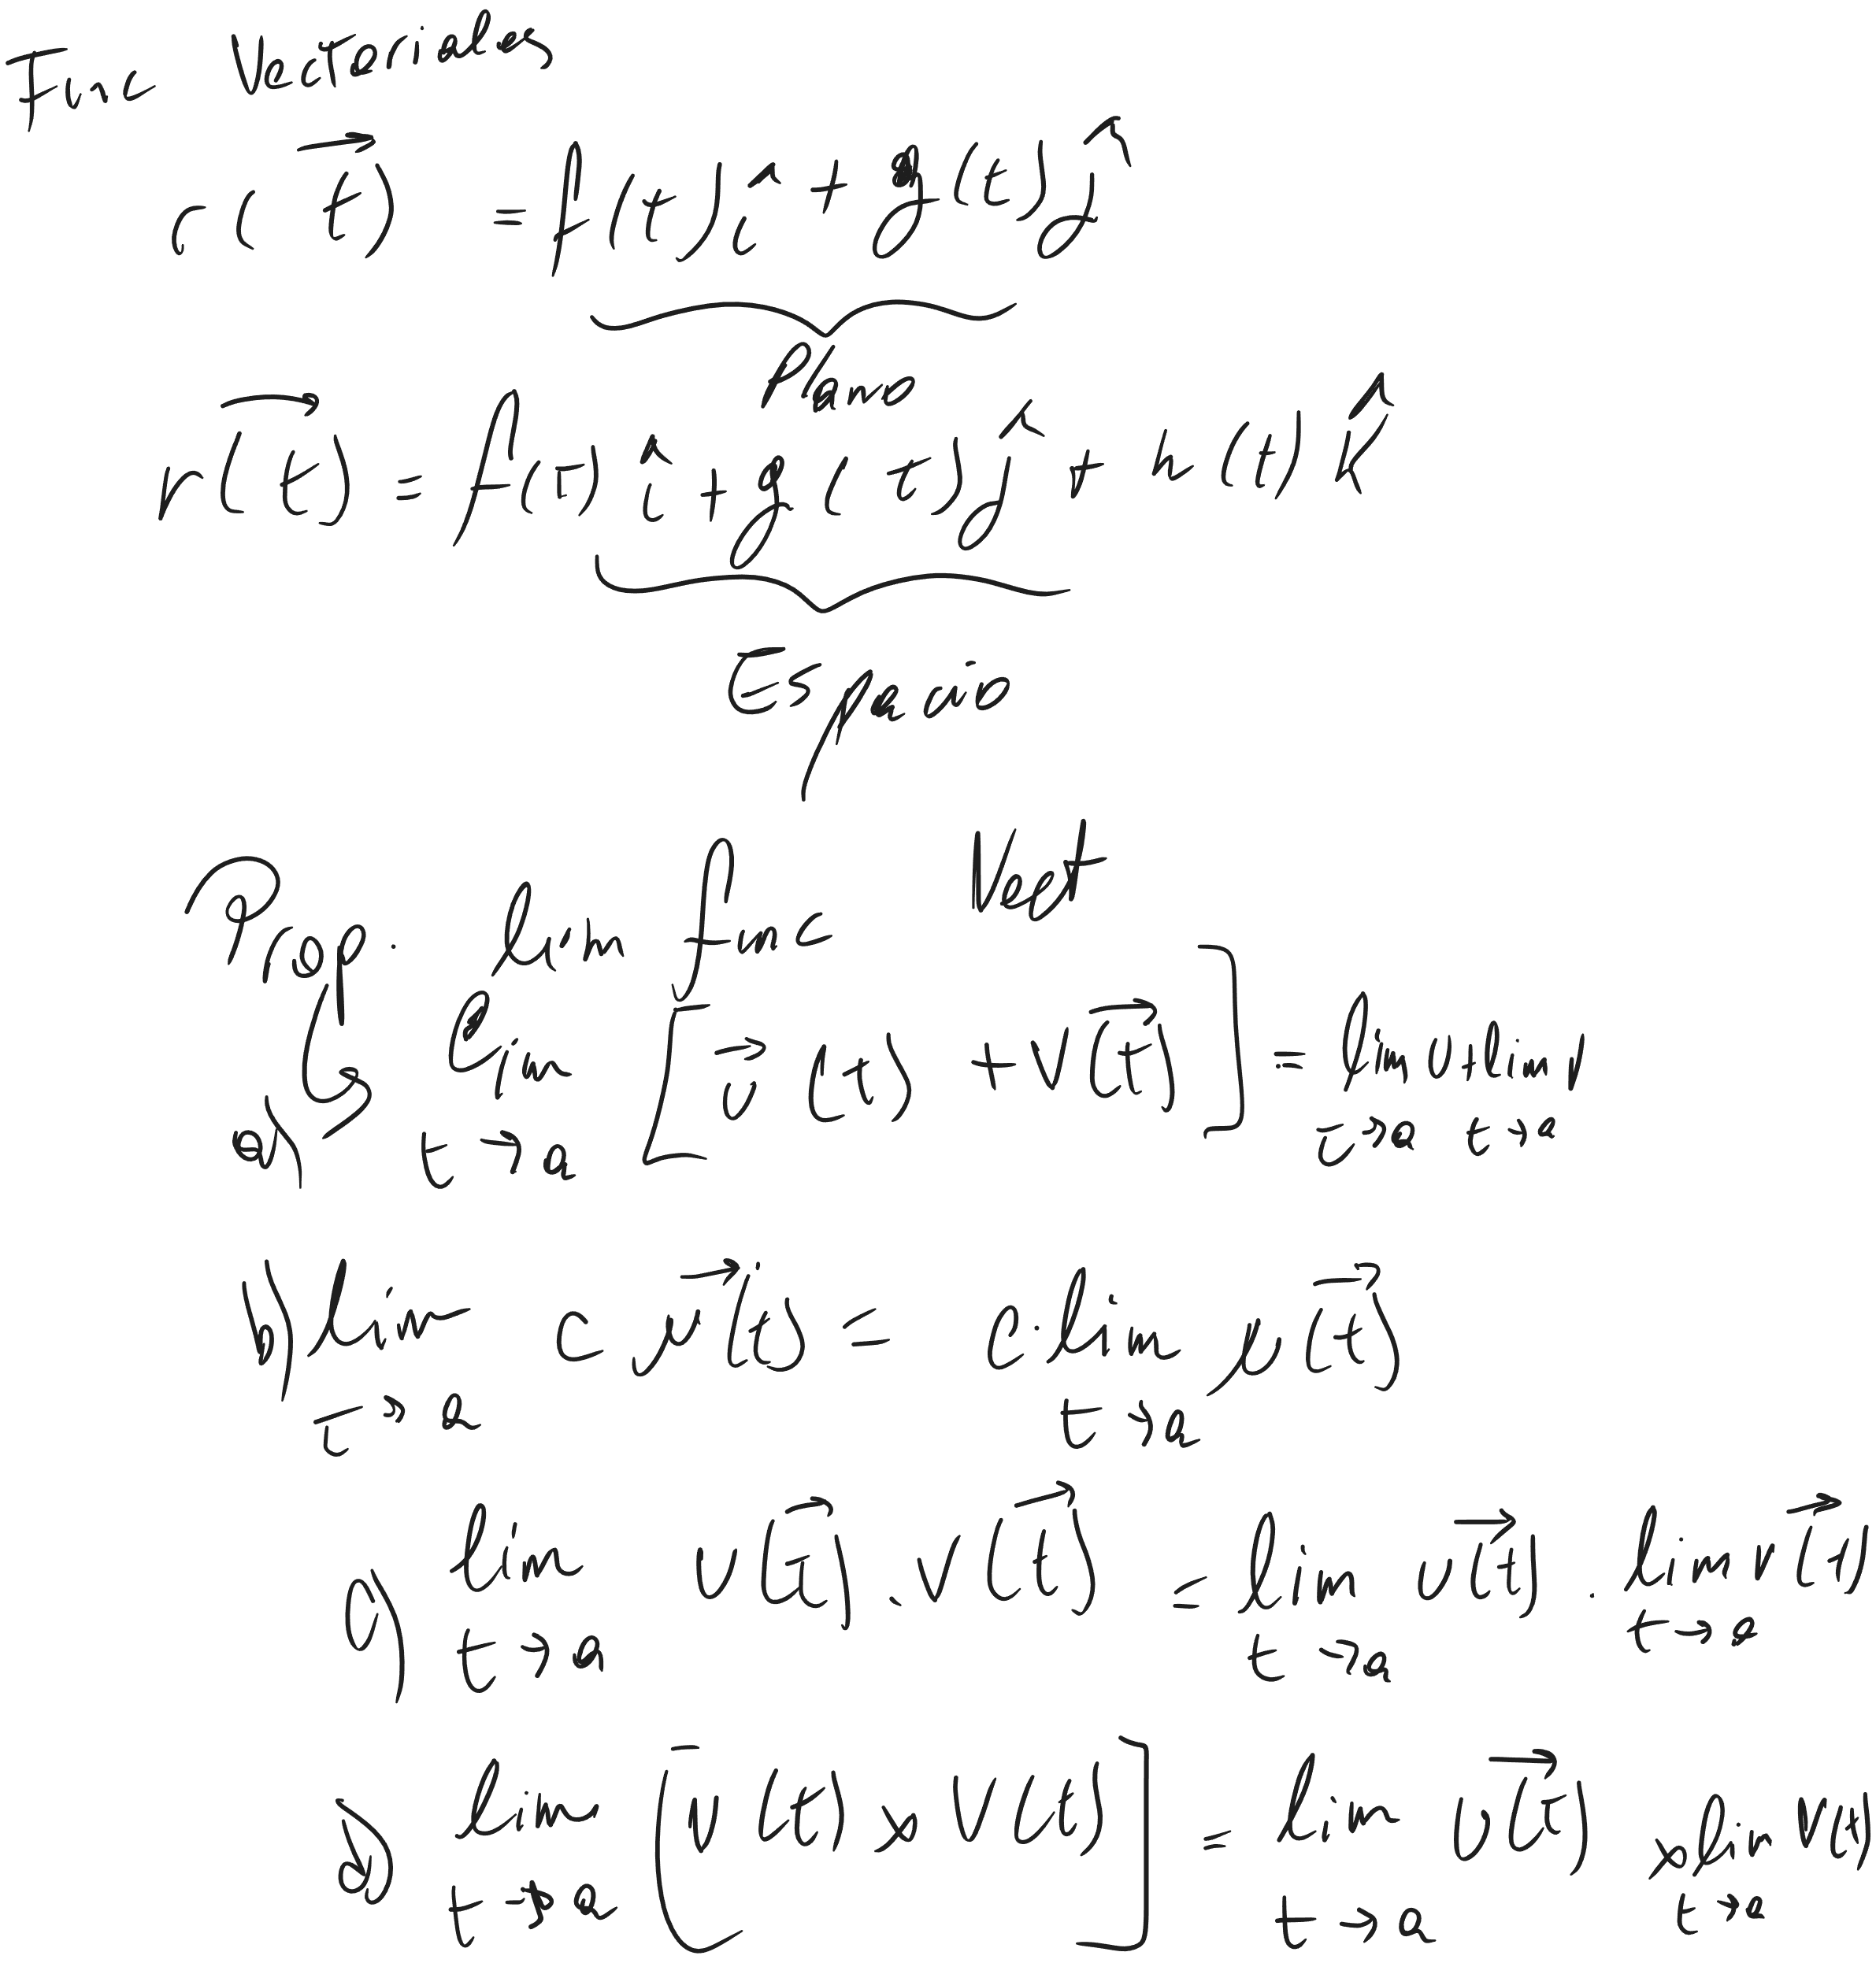 Func Vectoriales
r(t)⃗ = f(t)î + g(t)ĵ
Plano
r(t)⃗ = f(t)î + g(t)ĵ + h(t)k̂
Espacio
Prop. lim func Vect
a) lim t→a [u⃗(t) + v(t)⃗] = lim t→a u + lim t→a v
b) lim t→a c u(t)⃗ = c · lim t→a u(t)⃗
c) lim t→a u(t)⃗ · v(t)⃗ = lim t→a u(t)⃗ · lim t→a v(t)⃗
d) lim t→a [u(t) x v(t)] = lim t→a u(t)⃗ x lim t→a v(t)